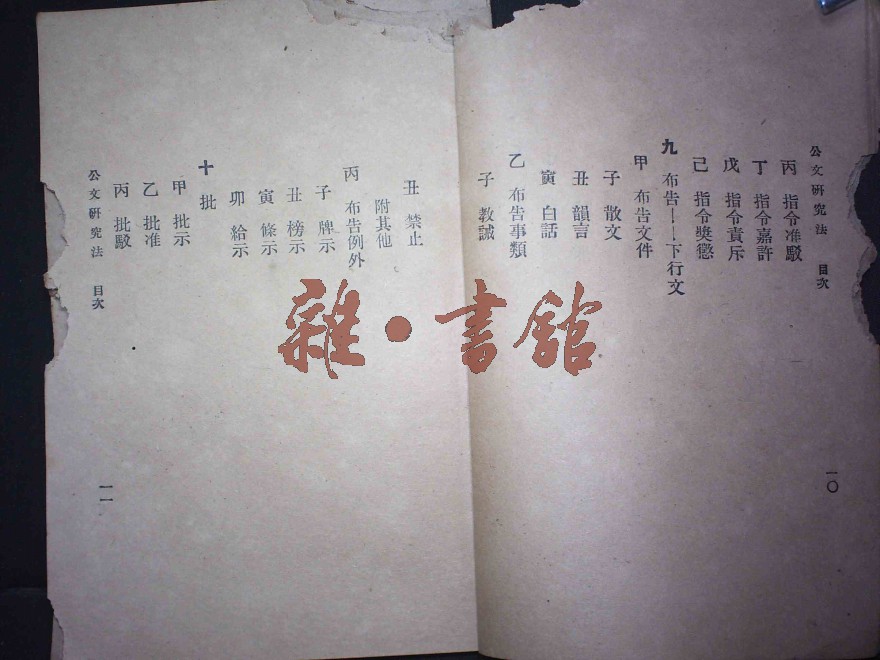 公文硏究法　目次
丙　指令准駁
丁　指令嘉許
戊　指令責斥
己　指令獎懲
九　布告——下行文
甲　布告文件
子　散文
丑　韻言
寅　白話
乙　布告事類
子　教誡
一〇
丑　禁止
附其他
丙　布告例外
子　牌示
丑　榜示
寅　條示
卯　給示
十　批
甲　批示
乙　批准
丙　批駁
公文硏究法　目次
一一
雜·書館